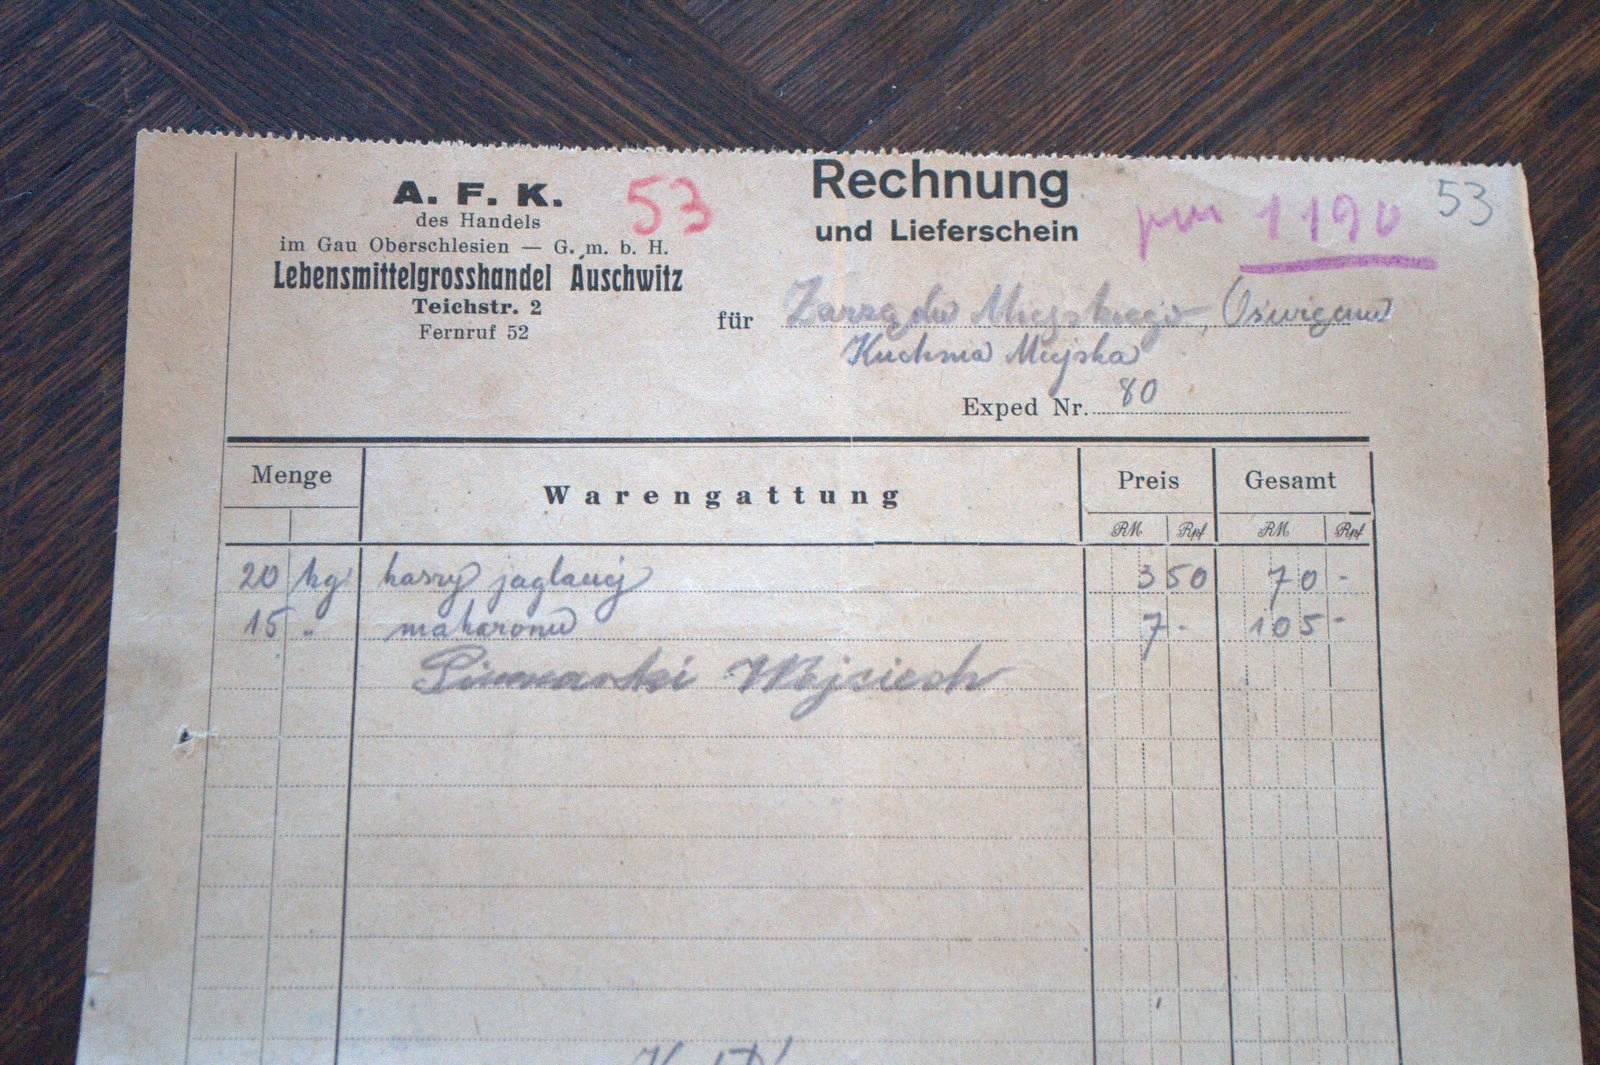 A. F. K.
des Handels
im Gau Oberschlesien — G. m. b. H.
Lebensmittelgrosshandel Auschwitz
Teichstr. 2
Fernruf 52
53
Rechnung
und Lieferschein
1190
53
für Zarządu Miejskiego, Oświęcim
Kuchnia Miejska
Exped Nr. 80
Menge Warengattung Preis Gesamt
RM Rpf RM Rpf
20 kg kaszy jaglanej 3 50 70 -
15 " makaronu 7 - 105 -
Wojciech